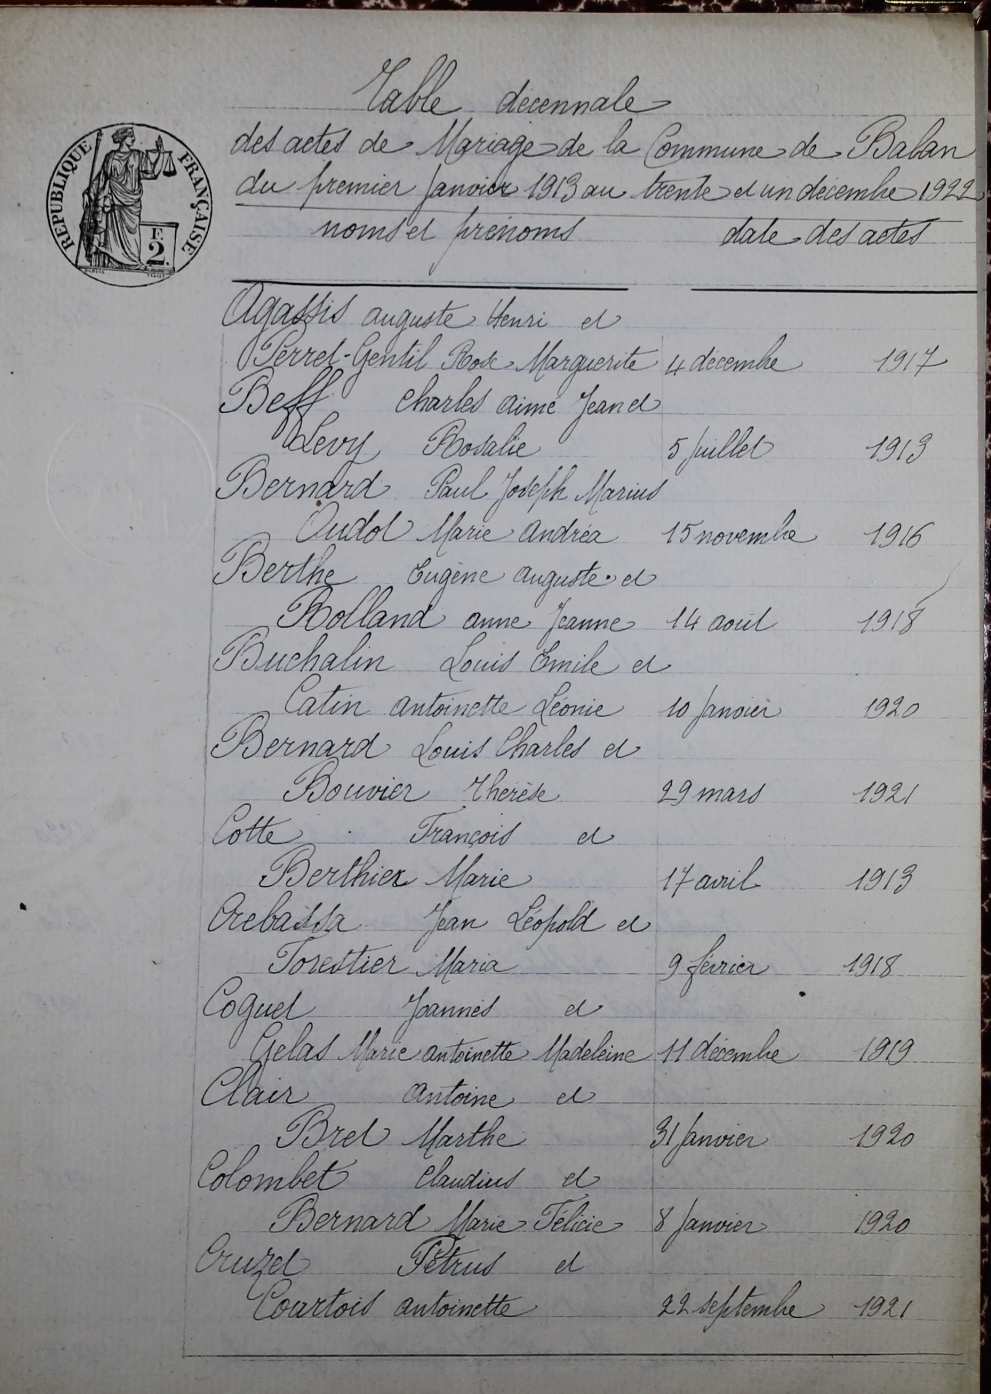 RÉPUBLIQUE FRANÇAISE
F.
2.
Table decennale
des actes de Mariage de la Commune de Balan
du premier Janvier 1913 au trente et un décembre 1922
noms et prénoms date des actes
Agassis auguste Henri et
Perret-Gentil Rose Marguerite 4 décembre 1917
Beff Charles aimé Jean et
Levy Rosalie 5 Juillet 1913
Bernard Paul Joseph Marius
Oudot Marie Andréa 15 novembre 1916
Berthe Eugène auguste et
Rolland anne Jeanne 14 août 1918
Buchalin Louis Emile et
Catin antoinette Léonie 10 Janvier 1920
Bernard Louis Charles et
Bouvier Therèse 29 mars 1921
Cotte François et
Berthier Marie 17 avril 1913
Crebassa Jean Léopold et
Forestier Maria 9 février 1918
Coguet Joannès et
Gelas Marie antoinette Madeleine 11 décembre 1919
Clair antoine et
Bret Marthe 31 Janvier 1920
Colombet Claudius et
Bernard Marie Félicie 8 Janvier 1920
Cruzel Pétrus et
Courtois antoinette 22 septembre 1921